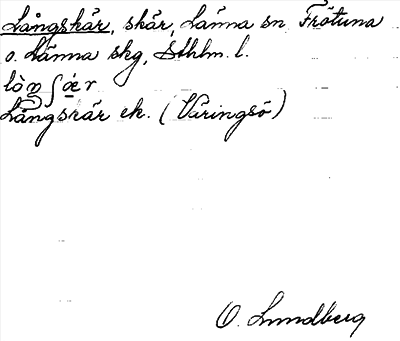 Långskär, skär, Länna sn Frötuna
o. Länna skg, Sthlm. l.
Långskär ek. (Väringsö)
O. Lundberg